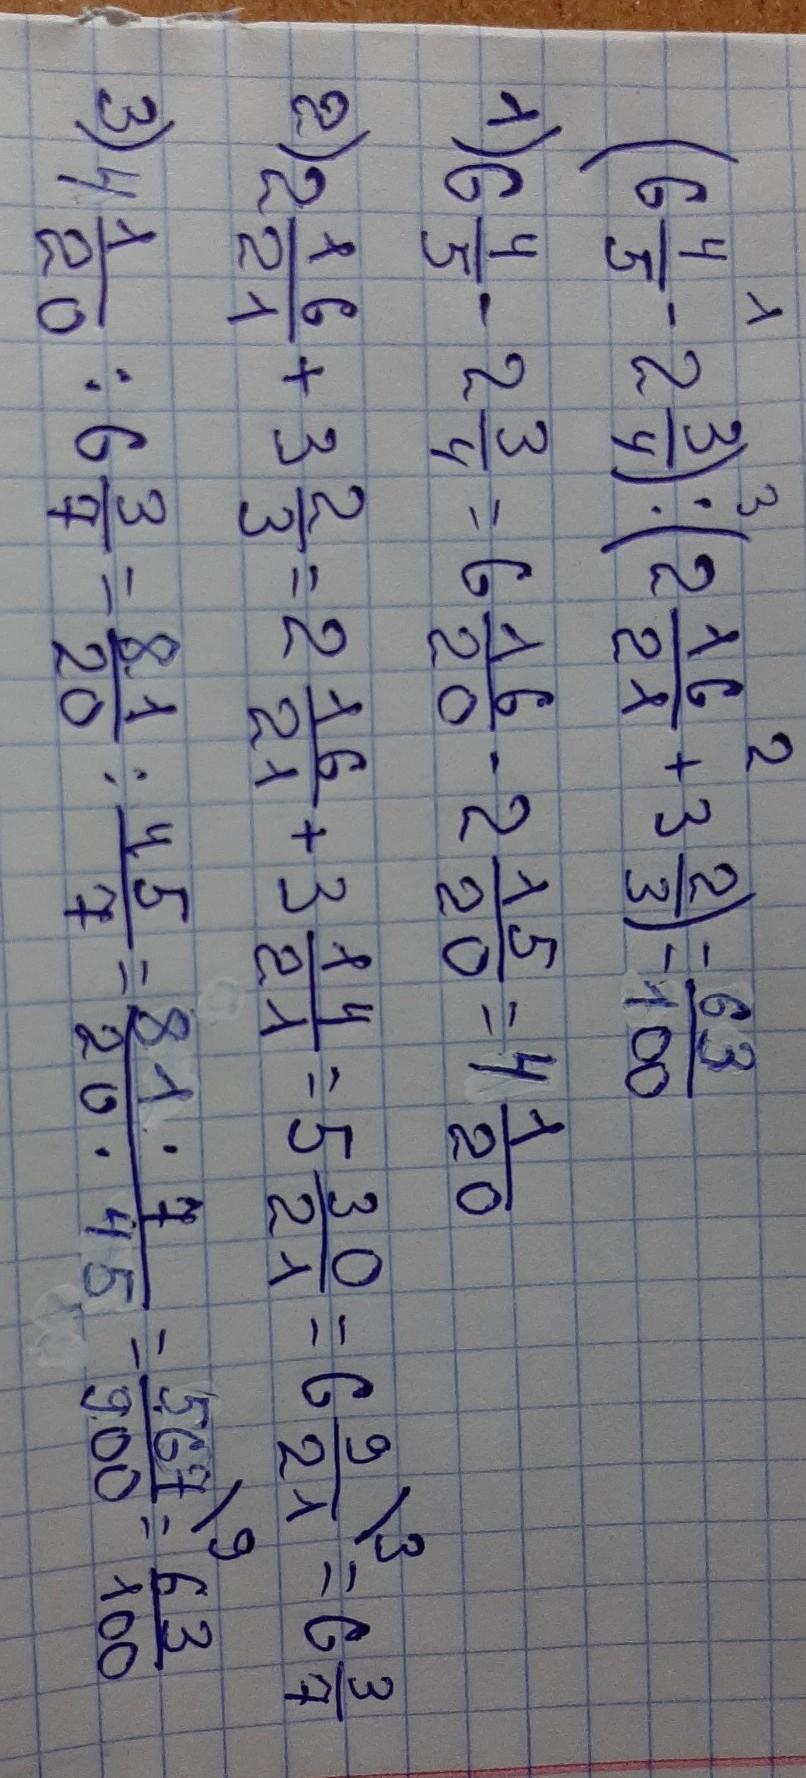 (6 4/5 - 2 3/4) : (2 16/21 + 3 2/3) = 63/100
1 3 2
1) 6 4/5 - 2 3/4 = 6 16/20 - 2 15/20 = 4 1/20
2) 2 16/21 + 3 2/3 = 2 16/21 + 3 14/21 = 5 30/21 = 6 9/21 \3 = 6 3/7
3) 4 1/20 : 6 3/7 = 81/20 : 45/7 = 81·7/20·45 = 567/900 \9 = 63/100